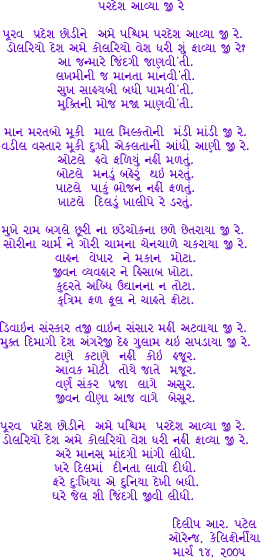 પરદેશ આવ્યા જી રે
પૂરવ પ્રદેશ છોડીને અમે પશ્ચિમ પરદેશ આવ્યા જી રે.
ડોલરિયો દેશ અમે કોલરિયો વેશ ધરી શું ફાવ્યા જી રે?
આ જન્મારે જિંદગી જાણવી'તી.
લખમીની જ માનતા માનવી'તી.
સુખ સાહ્યબી બધી પામવી'તી.
મુક્તિની મોજ મજા માણવી'તી.
માન મરતબો મૂકી માલ મિલ્કતોની મંડી માંડી જી રે.
વડીલ વસ્તાર મૂકી દુઃખી એકલતાની આંધી આણી જી રે.
ઓટલે હવે ફળિયું નહીં મળતું.
બોટલે મનડું બહેરું થઇ મરતું.
પાટલે પાકું ભોજન નહીં ફળતું.
ખાટલે દિલડું ખાલીપે રે ડરતું.
મુખે રામ બગલે છૂરી ના છડેચોકના છળે છેતરાયા જી રે.
સોરીના ચાર્મ ને ગોરી ચામના ચેનચાળે ચકરાયા જી રે.
વાહન વેપાર ને મકાન મોટા.
જીવન વ્યવહાર ને હિસાબ ખોટા.
કુદરતે અબ્ધિ ઉદ્યાનના ન તોટા.
કૃત્રિમ ફળ ફૂલ ને ચાહતે ફોટા.
ડિવાઇન સંસ્કાર તજી વાઇન સંસાર મહીં અટવાયા જી રે.
મુક્ત દિમાગી દેશ અંગરેજી દેહ ગુલામ થઇ સપડાયા જી રે.
ટાણે કટાણે નહીં કોઇ હજૂર.
આવક મોટી તોયે જાતે મજૂર.
વર્ણ સંકર પ્રજા લાગે અસુર.
જીવન વીણા આજ વાગે બેસૂર.
પૂરવ પ્રદેશ છોડીને અમે પશ્ચિમ પરદેશ આવ્યા જી રે.
ડોલરિયો દેશ અમે કોલરિયો વેશ ધરી નહીં ફાવ્યા જી રે.
અરે માનસ માંદગી માંગી લીધી.
ખરે દિલમાં દીનતા લાવી દીધી.
ફરે દુઃખિયા એ દુનિયા દેખી બધી.
ઘરે જેલ શી જિંદગી જીવી લીધી.
દિલીપ આર. પટેલ
ઓરેન્જ, કેલિફોર્નીયા
માર્ચ ૧૪, ૨૦૦૫